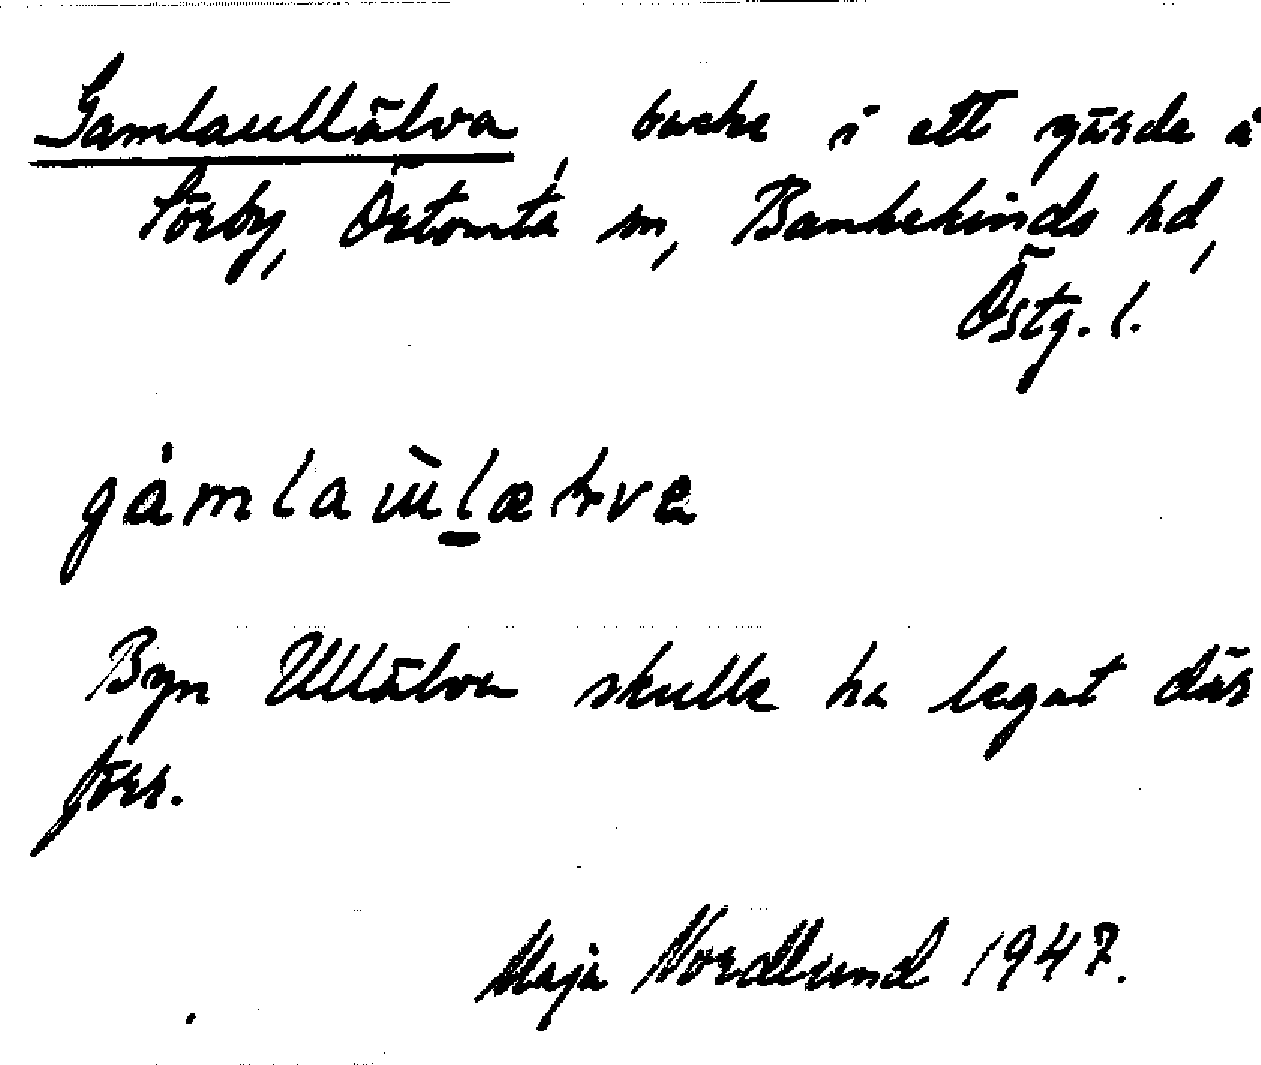 Gamlaullälva, backe i ett gärde å
Törby, Örtomta sn, Bankekinds hd,
Östg. l.
gàmlaùlælvɐ
Byn Ullälva skulle ha legat där
förr.
Maja Nordlund 1947.